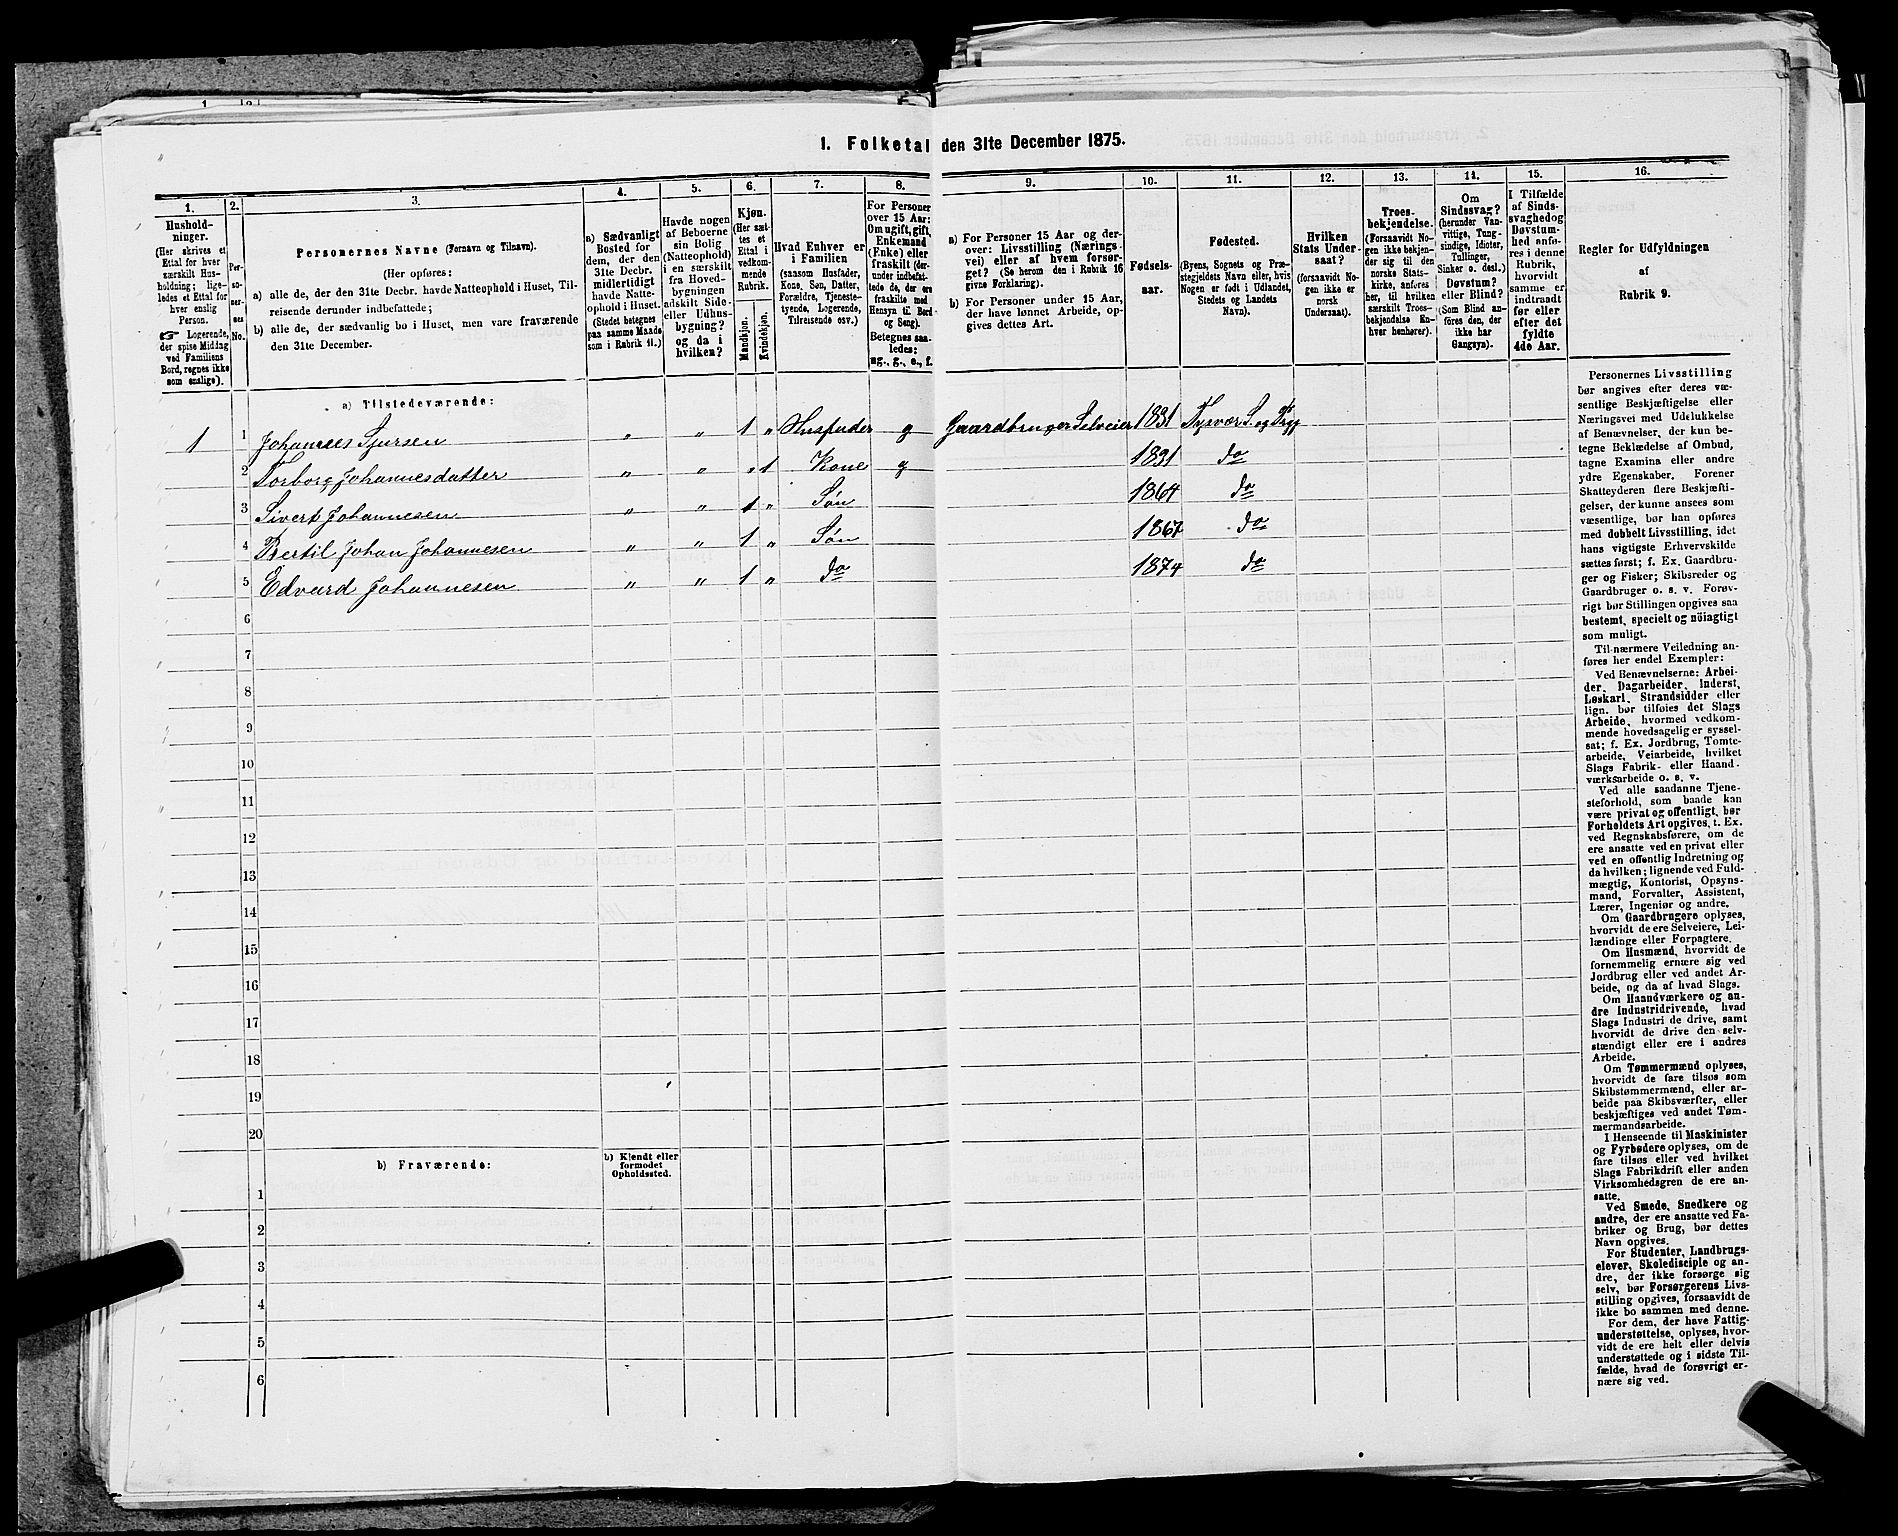 1. Folketal den 31te December 1875.
1. 2. 3. 4. 5. 6. 7. 8. 9. 10. 11. 12. 13. 14. 15. 16.
Hushold-
ninger.
(Her skrives et
Ettal for hver
særskilt Hus-
holdning; lige-
ledes et Ettal for
hver enslig
Person.
Logerende,
der spise Middag
ved Familiens
Bord, regnes ikke
som enslige).
Per-
so-
ner-
nes
No.
Personernes Navne (Fornavn og Tilnavn).
(Her opføres:
a) alle de, der den 31te Decbr. havde Natteophold i Huset, Til-
reisende derunder indbefattede;
b) alle de, der sædvanlig bo i Huset, men vare fraværende
den 31te December.
a) Sædvanligt
Bosted for
dem, der den
31te Decbr.
midlertidigt
havde Natte-
ophold i Huset.
(Stedet betegnes
paa samme Maade
som i Rubrik 11.)
Havde nogen
af Beboerne
sin Bolig
(Natteophold)
i en særskilt
fra Hoved-
bygningen
adskilt Side-
eller Udhus-
bygning?
og da i
hvilken?
Kjøn.
(Her sæt-
tes et
Ettal i
vedkom-
mende
Rubrik.
Mandkjøn.
Kvindekjøn.
Hvad Enhver er
i Familien
(saasom Husfader,
Kone, Søn, Datter,
Forældre, Tjeneste-
tyende, Logerende,
Tilreisende osv.)
For Personer
over 15 Aar:
Om ugift, gift,
Enkemand
(Enke) eller
fraskilt (der-
under indbefat-
tede de, der ere
fraskilte med
Hensyn til Bord
og Seng).
Betegnes saa-
ledes:
ug., g., e., f.
a) For Personer 15 Aar og der-
over: Livsstilling (Nærings-
vei) eller af hvem forsør-
get? (Se herom den i Rubrik 16
givne Forklaring).
b) For Personer under 15 Aar,
der have lønnet Arbeide, op-
gives dettes Art.
Fødsels-
aar.
Fødested.
(Byens, Sognets og Præ-
stegjeldets Navn eller, hvis
Nogen er født i Udlandet,
Stedets og Landets
Navn).
Hvilken
Stats Under-
saat?
(forsaavidt No-
gen ikke er
norsk
Undersaat).
Troes-
bekjendelse.
(Forsaavidt No-
gen ikke bekjen-
der sig til den
norske Stats-
kirke, anføres
her, til hvilken
særskilt Troes-
bekjendelse En-
hver henhører).
Om
Sindssvag?
(herunder Van-
vittige, Tung-
sindige, Idioter,
Tullinger,
Sinker o. desl.)
Døvstum?
eller Blind?
(Som Blind an-
føres den, der
ikke har
Gangsyn).
I Tilfælde
af Sinds-
svaghed og
Døvstum-
hed anfø-
res i denne
Rubrik,
hvorvidt
samme er
indtraadt
før eller
efter det
fyldte
4de Aar.
Regler for Udfyldningen
af
Rubrik 9.
a) Tilstedeværende:
1 1 Johannes Sjursen " " 1 " Husfader g Gaardbruger Selveier 1831 Tysvær S. og
2 Torborg Johannesdatter " " " 1 Kone g 1831 do
3 Sivert Johannesen " " 1 " Søn 1864 do
4 Bertil Johan Johannesen " " 1 " Søn 1867 do
5 Edvard Johannesen " " 1 " do 1874 do
6
7
8
9
10
11
12
13
14
15
16
17
18
19
20
b) Fraværende:
b) Kjendt eller
formodet
Opholdssted.
1
2
3
4
5
6
Personernes Livsstilling
bør angives efter deres væ-
sentlige Beskjæftigelse eller
Næringsvei med Udelukkelse
af Benævnelser, der kun be-
tegne Beklædelse af Ombud,
tagne Examina eller andre
ydre Egenskaber. Forener
Skatteyderen flere Beskjæfti-
gelser, der kunne ansees som
væsentlige, bør han opføres
med dobbelt Livsstilling, idet
hans vigtigste Erhvervskilde
sættes først; f. Ex. Gaardbru-
ger og Fisker; Skibsreder og
Gaardbruger o. s. v. Forøv-
rigt bør Stillingen opgives saa
bestemt, specielt og nöiagtigt
som muligt.
Til nærmere Veiledning an-
føres her endel Exempler:
Ved Benævnelserne: Arbei-
der, Dagarbeider, Inderst,
Løskarl, Strandsidder eller
lign. bør tilføies det Slags
Arbeide, hvormed vedkom-
mende hovedsagelig er syssel-
sat; f. Ex. Jordbrug, Tomte-
arbeide, Veiarbeide, hvilket
Slags Fabrik- eller Haand-
værksarbeide o. s. v.
Ved alle saadanne Tjene-
steforhold, som baade kan
være privat og offentligt, bør
Forholdets Art opgives, t. Ex.
ved Regnskabsførere, om de
ere ansatte ved en privat eller
ved en offentlig Indretning og
da hvilken; lignende ved Fuld-
mægtig, Kontorist, Opsyns-
mand, Forvalter, Assistent,
Lærer, Ingeniør og andre.
Om Gaardbrugere oplyses,
hvorvidt de ere Selveiere, Lei-
lændinge eller Forpagtere.
Om Husmænd, hvorvidt de
fornemmelig ernære sig ved
Jordbrug eller ved andet Ar-
beide, og da af hvad Slags.
Om Haandværkere og an-
dre Industridrivende, hvad
Slags Industri de drive, samt
hvorvidt de drive den selv-
stændigt eller ere i andres
Arbeide.
Om Tømmermænd oplyses,
hvorvidt de fare tilsøs som
Skibstømmermænd, eller ar-
beide paa Skibsværfter, eller
beskjæftiges ved andet Tøm-
mermandsarbeide.
I Henseende til Maskinister
og Fyrbødere oplyses, om de
fare tilsøs eller ved hvilket
Slags Fabrikdrift eller anden
Virksomhedsgren de ere an-
satte.
Ved Smede, Snedkere og
andre, der ere ansatte ved Fa-
briker og Brug, bør dettes
Navn opgives.
For Studenter, Landbrugs-
elever, Skoledisciple og an-
dre, der ikke forsørge sig
selv, bør Forsørgerens Livs-
stilling opgives, forsaavidt de
ikke bo sammen med denne.
For dem, der have Fattig-
understøttelse, oplyses, hvor-
vidt de ere helt eller delvis
understøttede og i sidste Til-
fælde, hvad de forøvrigt er-
nære sig ved.